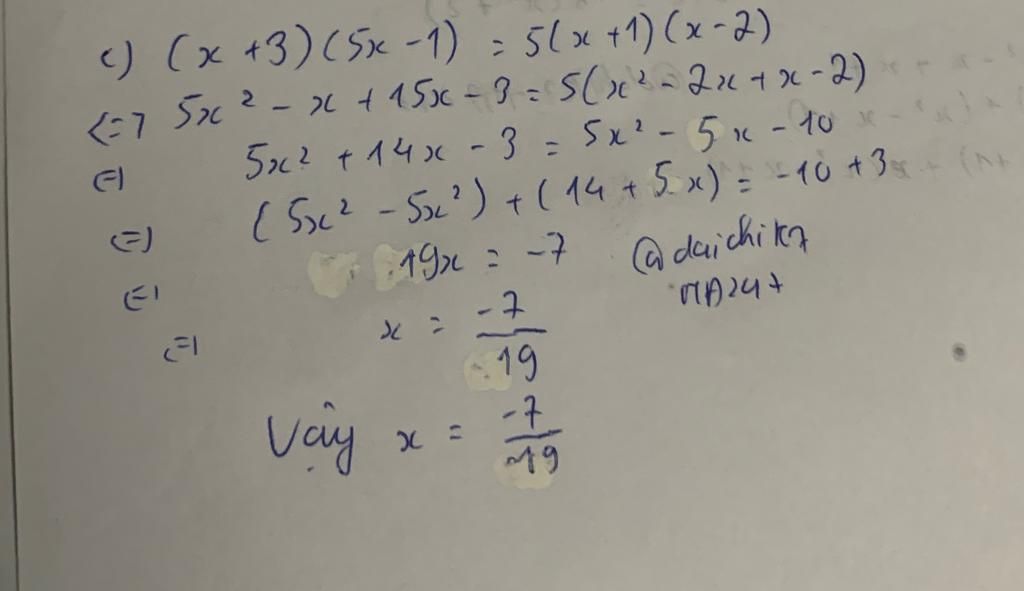 c) (x + 3)(5x - 1) = 5(x + 1)(x - 2)
<=> 5x² - x + 15x - 3 = 5(x² - 2x + x - 2)
<=> 5x² + 14x - 3 = 5x² - 5x - 10
<=> (5x² - 5x²) + (14 + 5x) = -10 + 3
<=> 19x = -7 @daichik7
<=> x = -7/19
Vậy x = -7/19